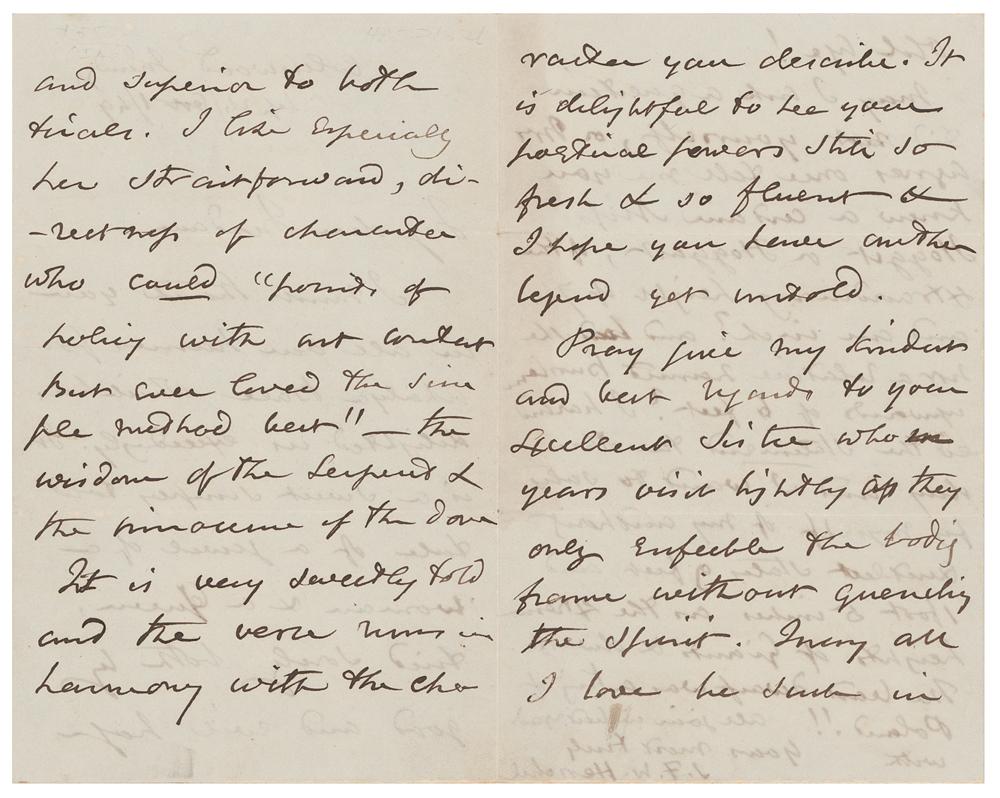 and superior to both
trials. I like Especially
her straitforward, di-
-rectness of character
who could "points of
policy with art contest
But ever loved the sim
ple method best" — the
wisdom of the Serpent &
the innocence of the dove
It is very sweetly told
and the verse runs in
harmony with the cha
racter you describe. It
is delightful to see your
poetical powers still so
fresh & so fluent &
I hope you have another
legend yet untold.
Pray give my kindest
and best regards to your
Excellent Sister who
years visit lightly as they
only Enfeeble the bodily
frame without quenching
the Spirit. May all
I love be such in